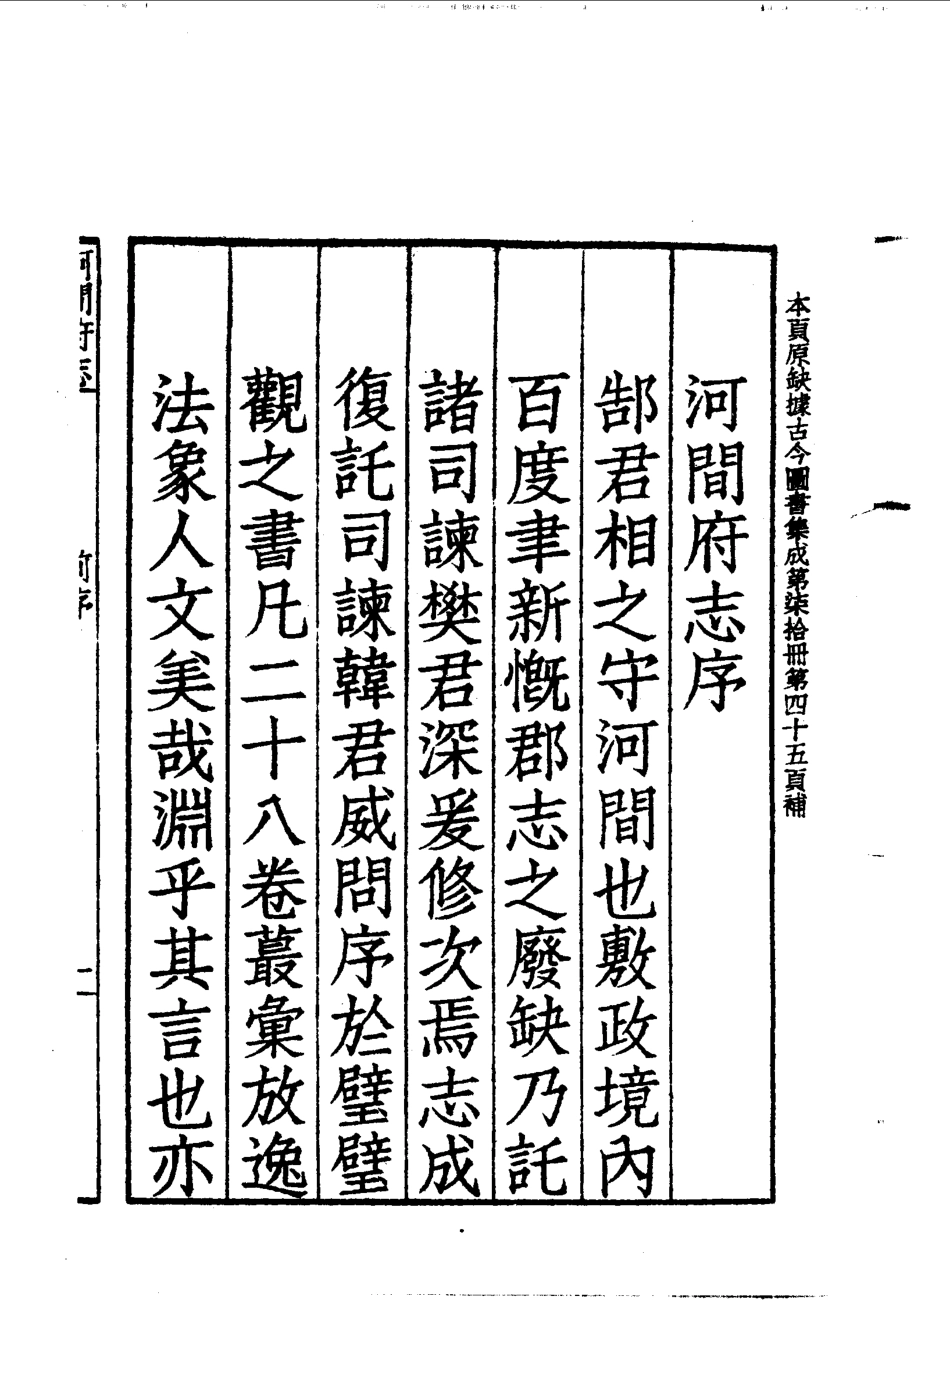 本頁原缺據古今圖書集成第柒拾冊第四十五頁補
河間府志序
郜君相之守河間也敷政境內
百度聿新慨郡志之廢缺乃託
諸司諫樊君深爰修次焉志成
復託司諫韓君威問序於璧璧
觀之書凡二十八卷蕞彙放逸
法象人文美哉淵乎其言也亦
河間府志
前序
二